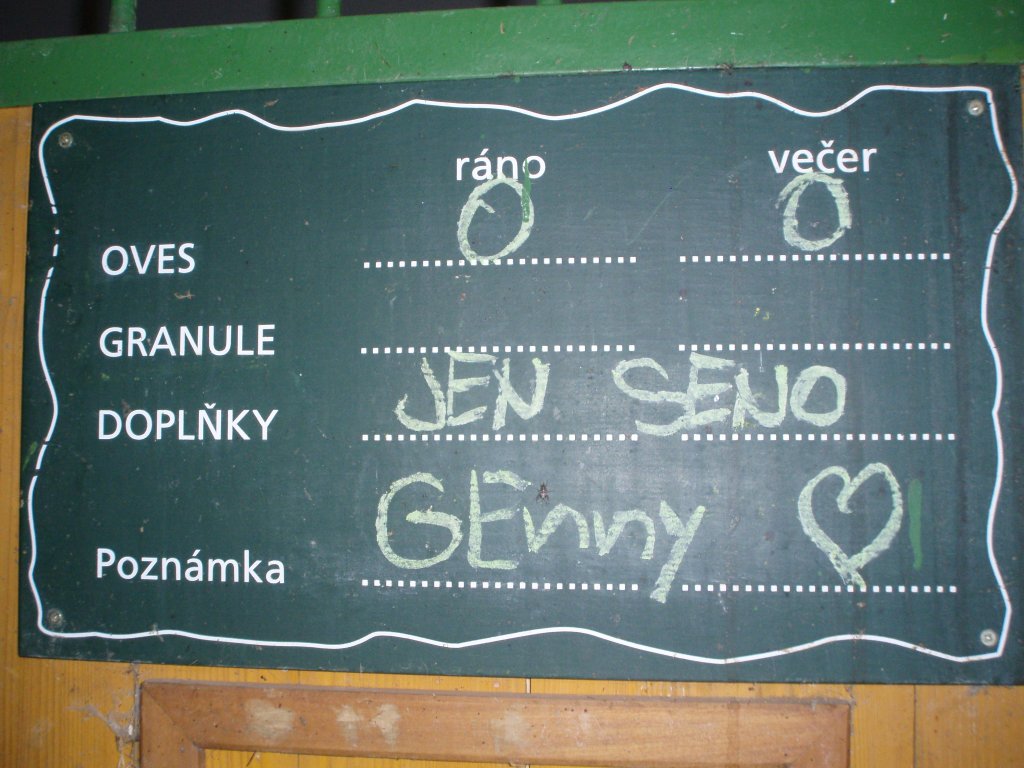 ráno večer
OVES O O
GRANULE
DOPLŇKY JEN SENO
Poznámka GEnny